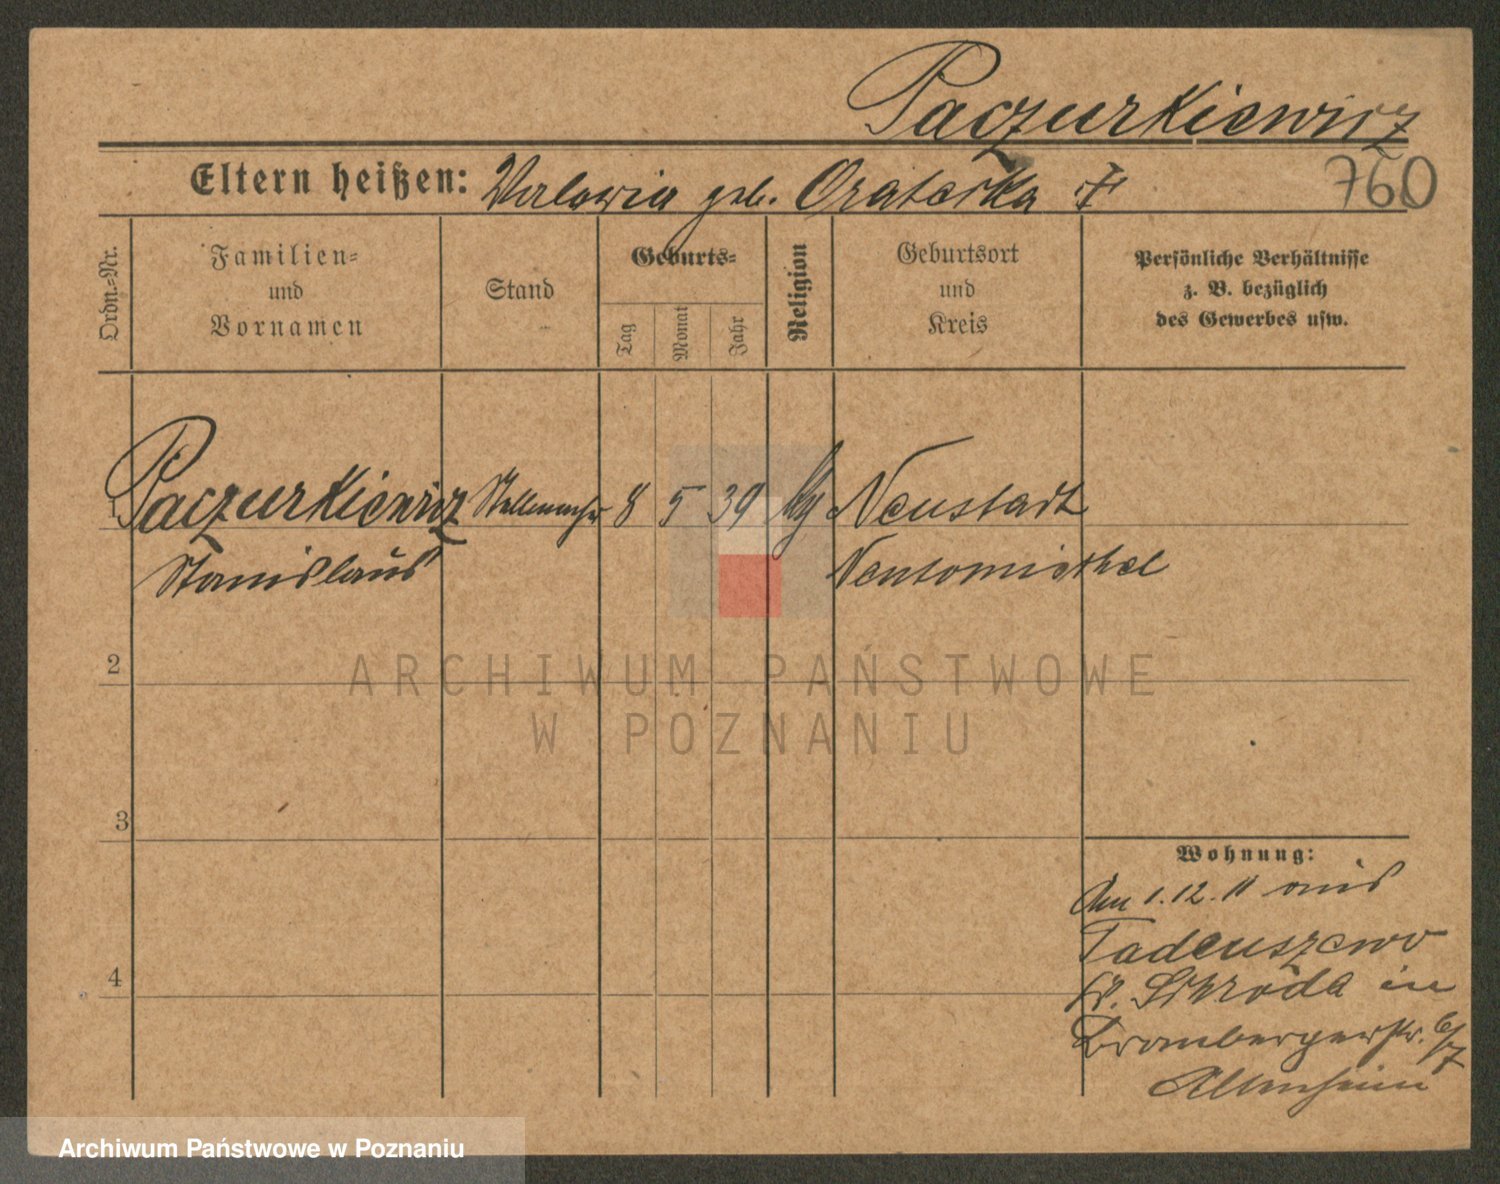 Paczurkiewicz
760
Eltern heißen: geb. †
Ordn.-Nr.
Familien-
und
Vornamen
Stand
Geburts-
Tag
Monat
Jahr
Religion
Geburtsort
und
Kreis
Persönliche Verhältnisse
z. B. bezüglich
des Gewerbes usw.
1 Paczurkiewicz Stellmacher 8 5 39 Neustadt
Stanislaus Neutomischel
2
3
4
Wohnung:
Am 1.12.11 aus
Tadeuszewo
Kr. Schroda in
Brombergerstr. 6/7
Altenheim
ARCHIWUM PAŃSTWOWE
W POZNANIU
Archiwum Państwowe w Poznaniu